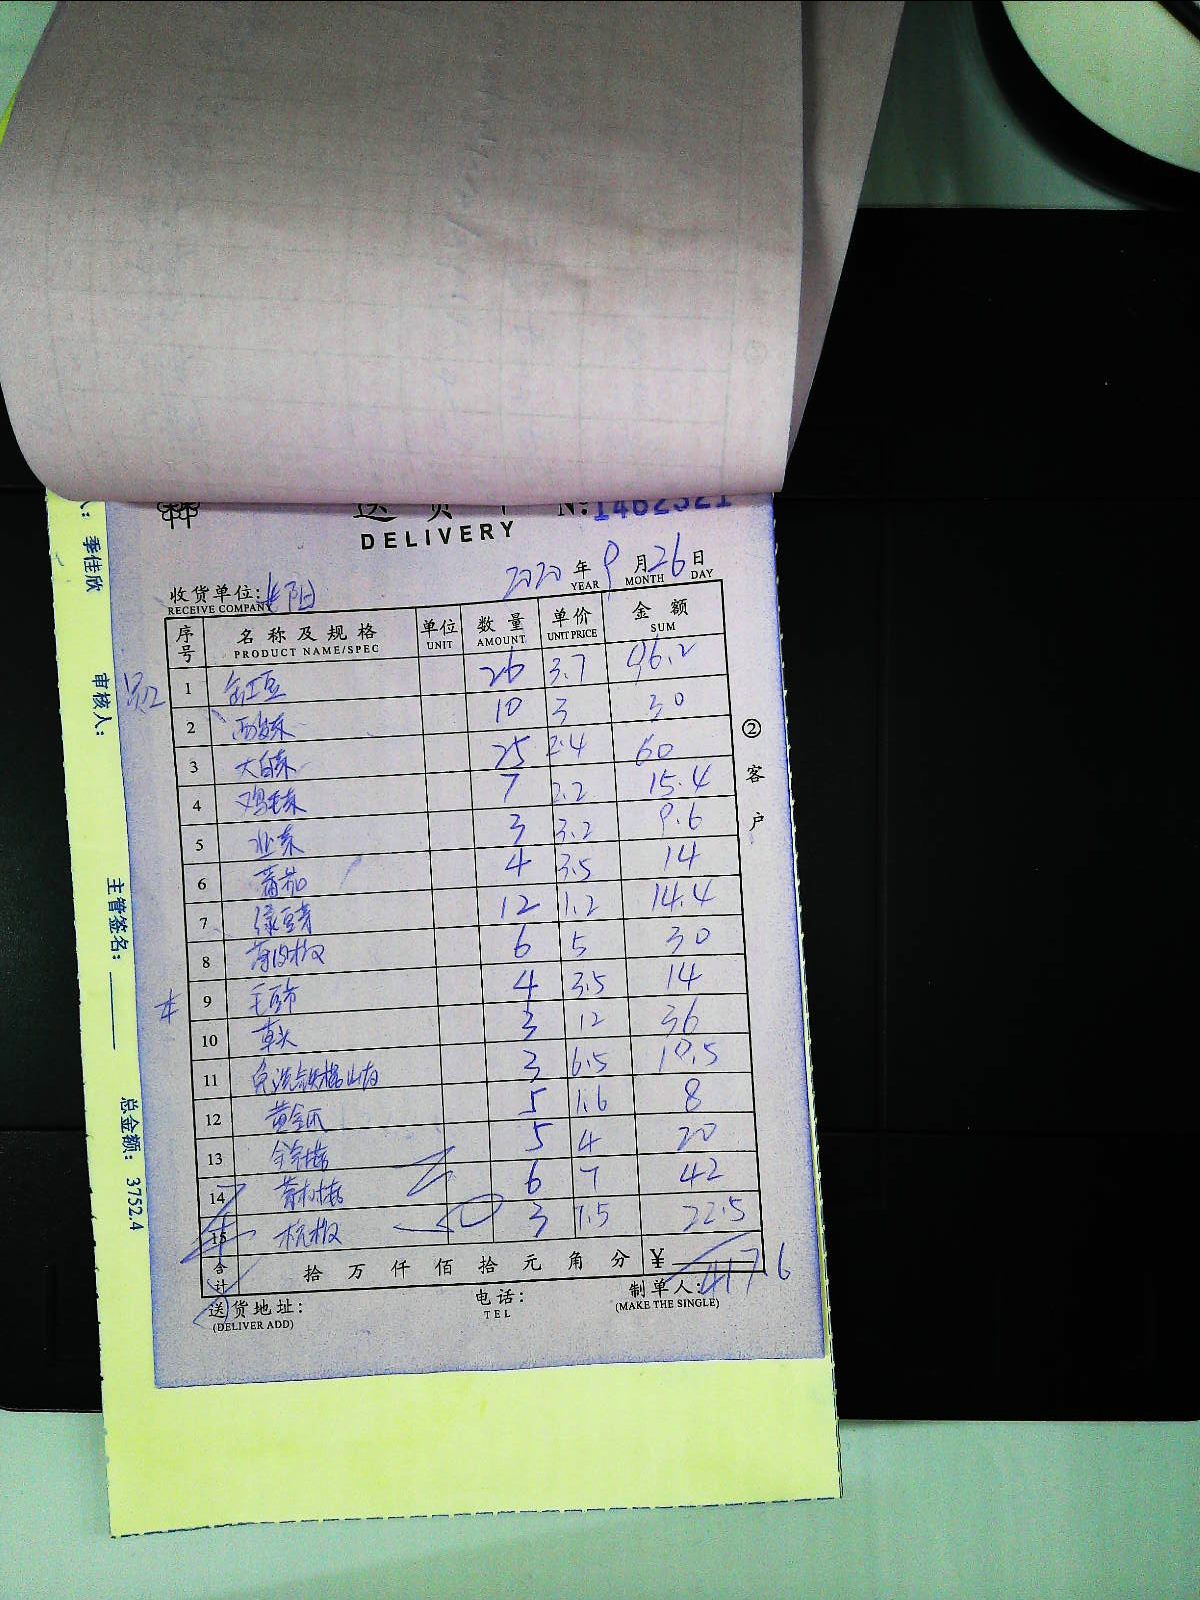 送货单 №:1462321
DELIVERY
2020年9月26日
YEAR MONTH DAY
收货单位:
RECEIVE COMPANY
序号 名称及规格 单位 数量 单价 金额
PRODUCT NAME/SPEC UNIT AMOUNT UNIT PRICE SUM
1 26 3.7 96.2
2 10 3 30
3 大白菜 25 2.4 60
4 鸡毛菜 7 2.2 15.4
5 3 3.2 9.6
6 蕃茄 4 3.5 14
7 绿豆芽 12 1.2 14.4
8 薄皮椒 6 5 30
9 毛豆节 4 3.5 14
10 草头 3 12 36
11 免洗铁棍山药 3 6.5 19.5
12 黄金瓜 5 1.6 8
13 5 4 20
14 6 7 42
15 杭椒 3 7.5 22.5
合计 拾 万 仟 佰 拾 元 角 分 ¥ 417.6
送货地址: 电话: 制单人:
(DELIVER ADD) TEL (MAKE THE SINGLE)
② 客户
人: 季佳欣 审核人: 主管签名: 总金额: 3752.4